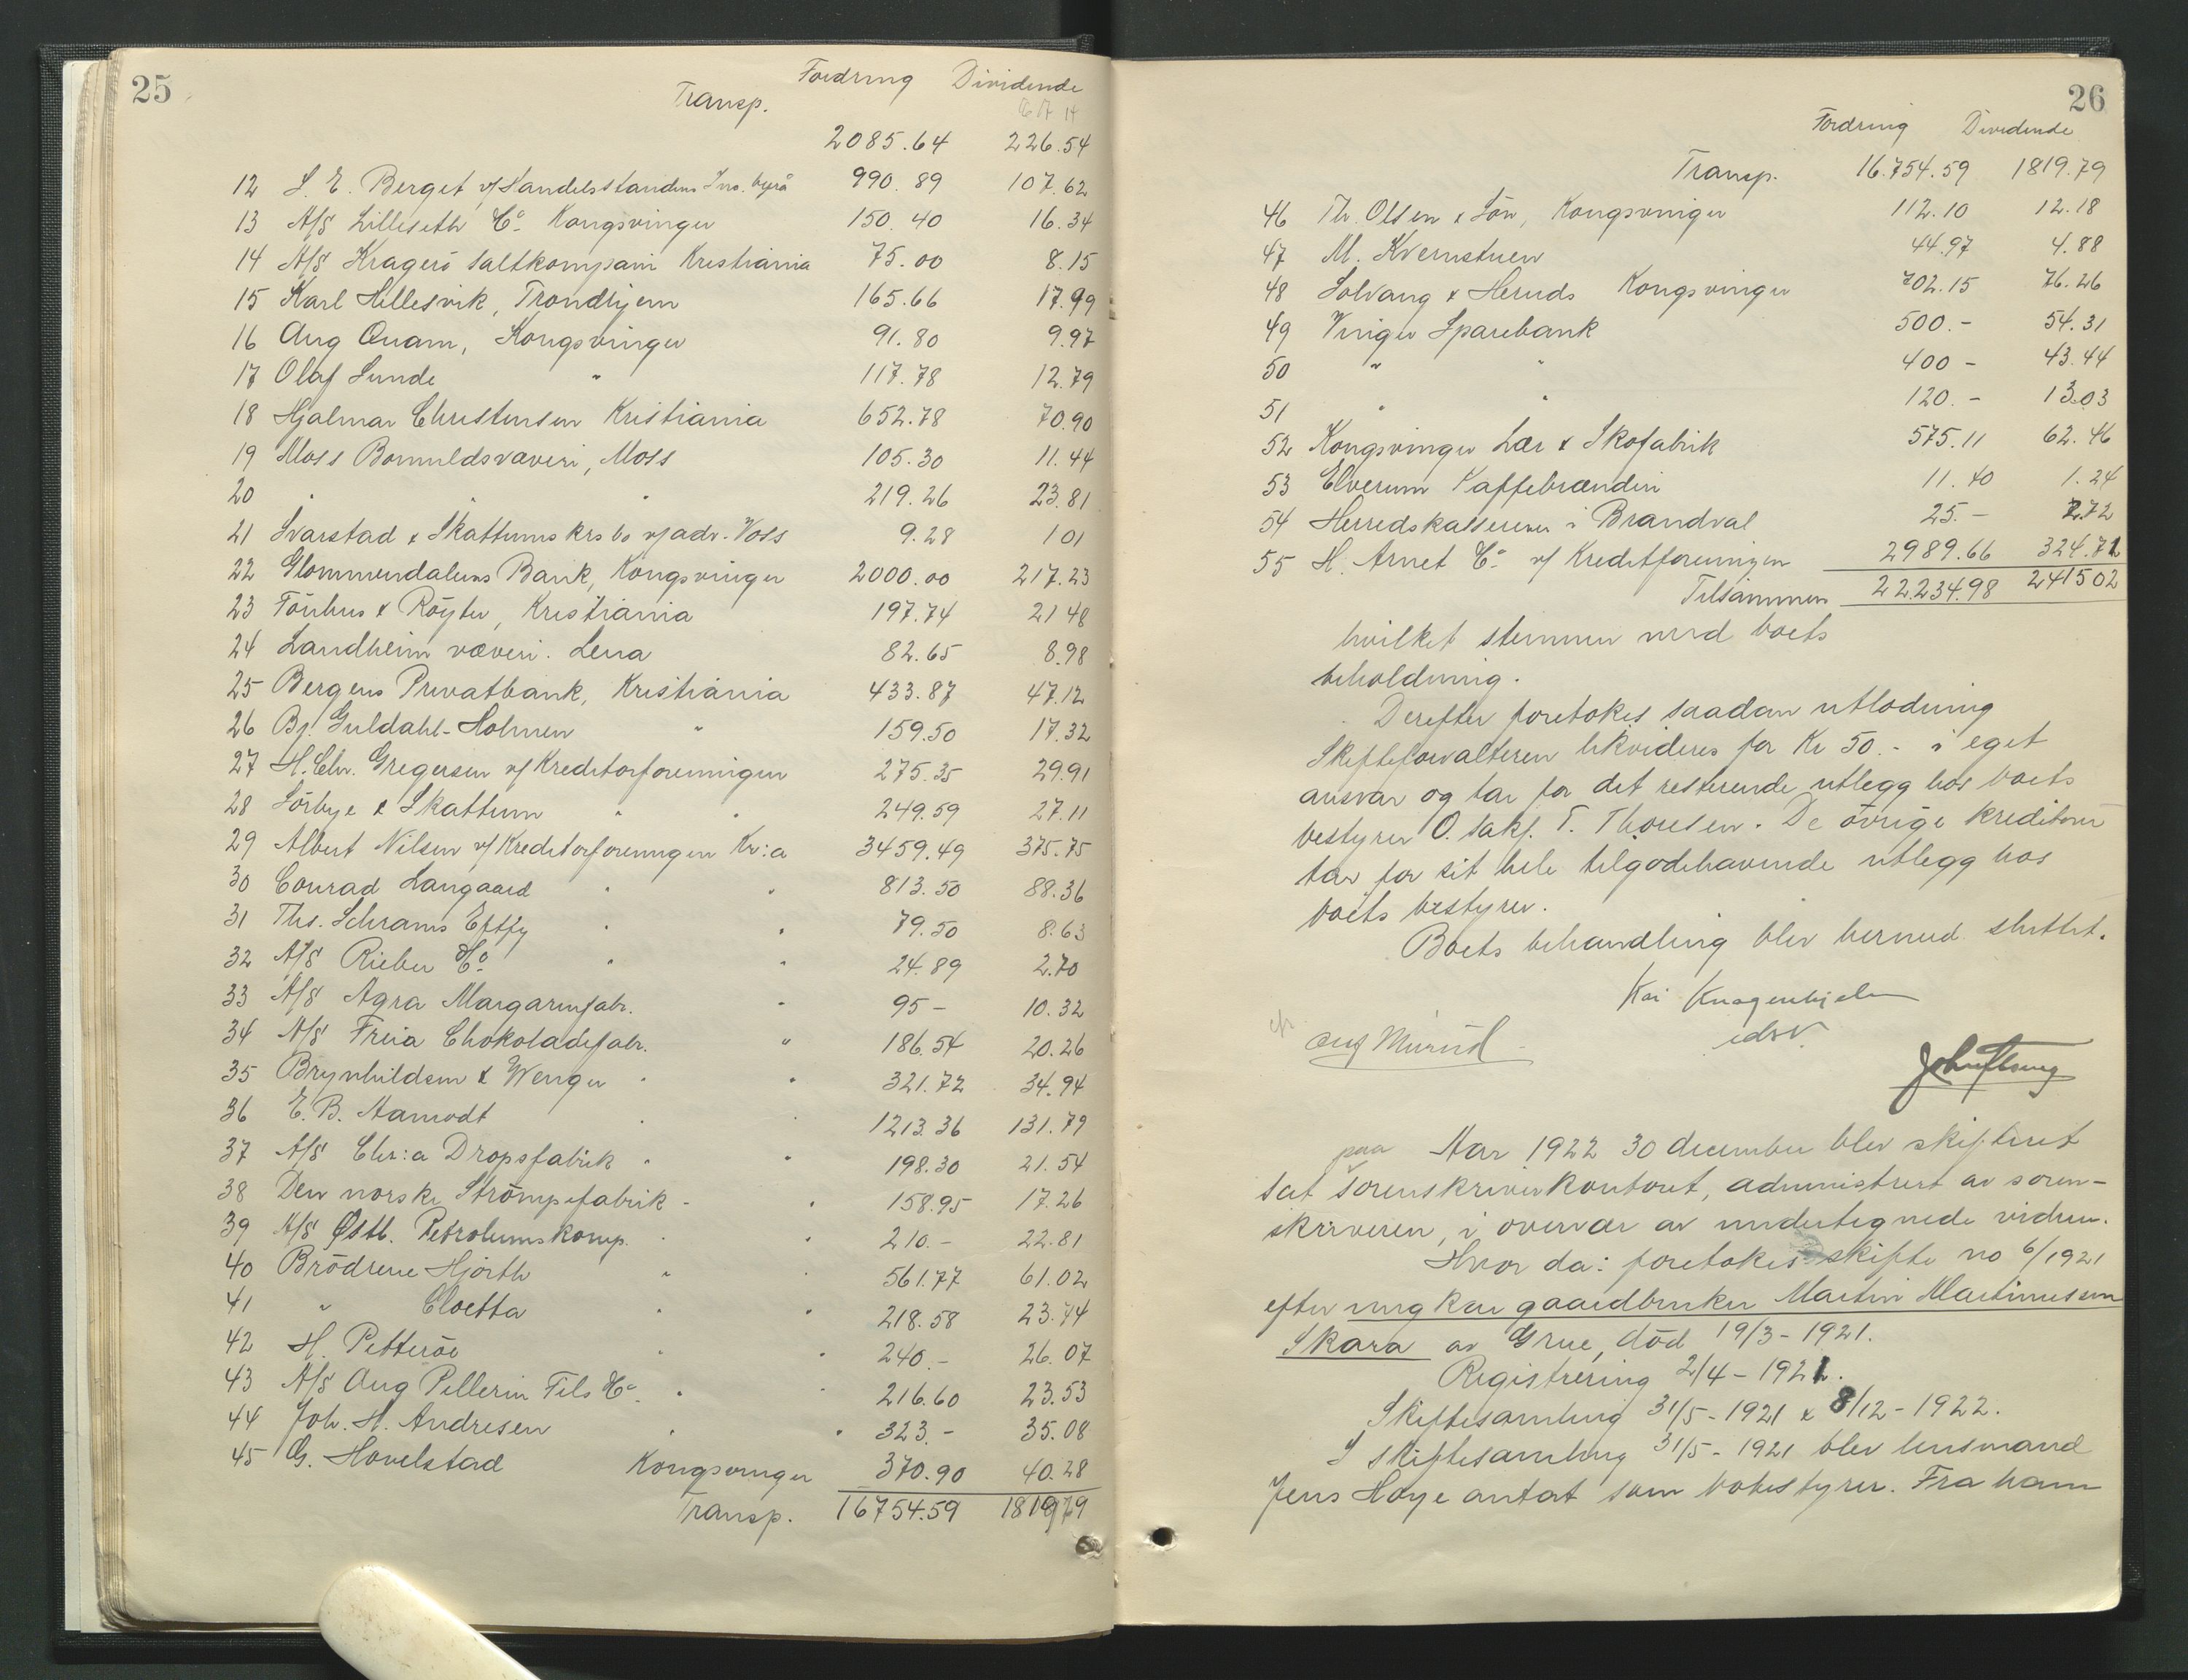 25
Fordring Dividende
Transp.
2085.64 226.54
12 S. E. Berget v/Handelsstandens Ink. byrå 990.89 107.62
13 A/S Lilleseth & Co Kongsvinger 150.40 16.34
14 A/S Kragerö Saltkompani Kristiania 75.00 8.15
15 Karl Hellesvik, Trondhjem 165.66 17.99
16 Aug Quam, Kongsvinger 91.80 9.97
17 Olaf Lunde " 117.78 12.79
18 Hjalmar Christensen Kristiania 652.78 70.90
19 Moss Bomuldsvæveri, Moss 105.30 11.44
20 " " " 219.26 23.81
21 Svarstad & Skattums krs bo v/adv. Voss 9.28 1 01
22 Glommendalens Bank, Kongsvinger 2000.00 217.23
23 Tönhus & Röyter, Kristiania 197.74 21 48
24 Landheim væveri. Lena 82.65 8.98
25 Bergens Privatbank, Kristiania 433.87 47.12
26 Bj. Guldahl-Holmen " 159.50 17.32
27 H. Chr. Gregersen v/Kreditorforeningen 275.35 29.91
28 Sörbye & Skattum " " 249.59 27.11
29 Albert Nilsen v/Kreditorforeningen Kr:a 3459.49 375.75
30 Conrad Langaard " " 813.50 88.36
31 Ths. Schrams Eftfg " " 79.50 8.63
32 A/S Rieber & Co " " 24.89 2.70
33 A/S Agra Margarinfabr. " 95 - 10.32
34 A/S Freia Chokoladefabr. " 186.54 20.26
35 Brynhildsen & Wenger " " 321.72 34.94
36 E. B. Aamodt " " 1213.36 131.79
37 A/S Chr:a Dropsfabrik " " 198.30 21.54
38 Den norske Strömpefabrik - " 158.95 17.26
39 A/S Østl. Petroleumskomp. " " 210.- 22.81
40 Brödrene Hjorth " " 561.77 61.02
41 " Cloetta " " 218.58 23.74
42 H. Petteröe " " 240.- 26.07
43 A/S Aug Pellerin Fils & Co " " 216.60 23.53
44 Joh. H. Andresen " " 323.- 35.08
45 G. Hovelstad Kongsvinger 370.90 40.28
Transp. 16754.59 1819.79
26
Fordring Dividende
Transp. 16.754.59 1819.79
46 Th. Olsen & Sön, Kongsvinger 112.10 12.18
47 M. Kvernstuen 44.97 4.88
48 Solvang & Heruds Kongsvinger 702.15 76.26
49 Vinger Sparebank 500.- 54.31
50 " " 400 - 43.44
51 " " 120.- 13.03
52 Kongsvinger Lær & Skofabrik 575.11 62.46
53 Elverum Kaffebrænderi 11.40 1.24
54 Herredskassereren i Brandval 25.- 2.72
55 H. Arnet & Co v/ Kreditforeningen 2989.66 324.71
Tilsammen 22.234.98 2415 02
hvilket stemmer med boets
beholdning.
Derefter foretokes saadan utlodning
Skifteforvalteren likvideres for Kr 50.- i eget
ansvar og tar for det resterende utlegg hos boets
bestyrer O. sakf. T. Thoresen. De övrige kreditorer
tar for sit hele tilgodehavende utlegg hos
boets bestyrer.
Boets behandling blev hermed sluttet.
Kai Knagenhjelm
edsv.
Aug Murud
paa Aar 1922 30 december blev skifteret
sat sorenskriverkontoret, administrert av soren-
skriveren, i overvær av undertegnede vidner.
Hvor da: foretokes skifte no 6/1921
efter ungkar gaardbruker Martin Martinussen
Skara av Grue, död 19/3 - 1921.
Registrering 2/4 - 1921.
Skiftesamling 31/5 - 1921 & 8/12 - 1922.
I skiftesamling 31/5 - 1921 blev lensmand
Jens Hoye antat som bobestyrer. Fra ham